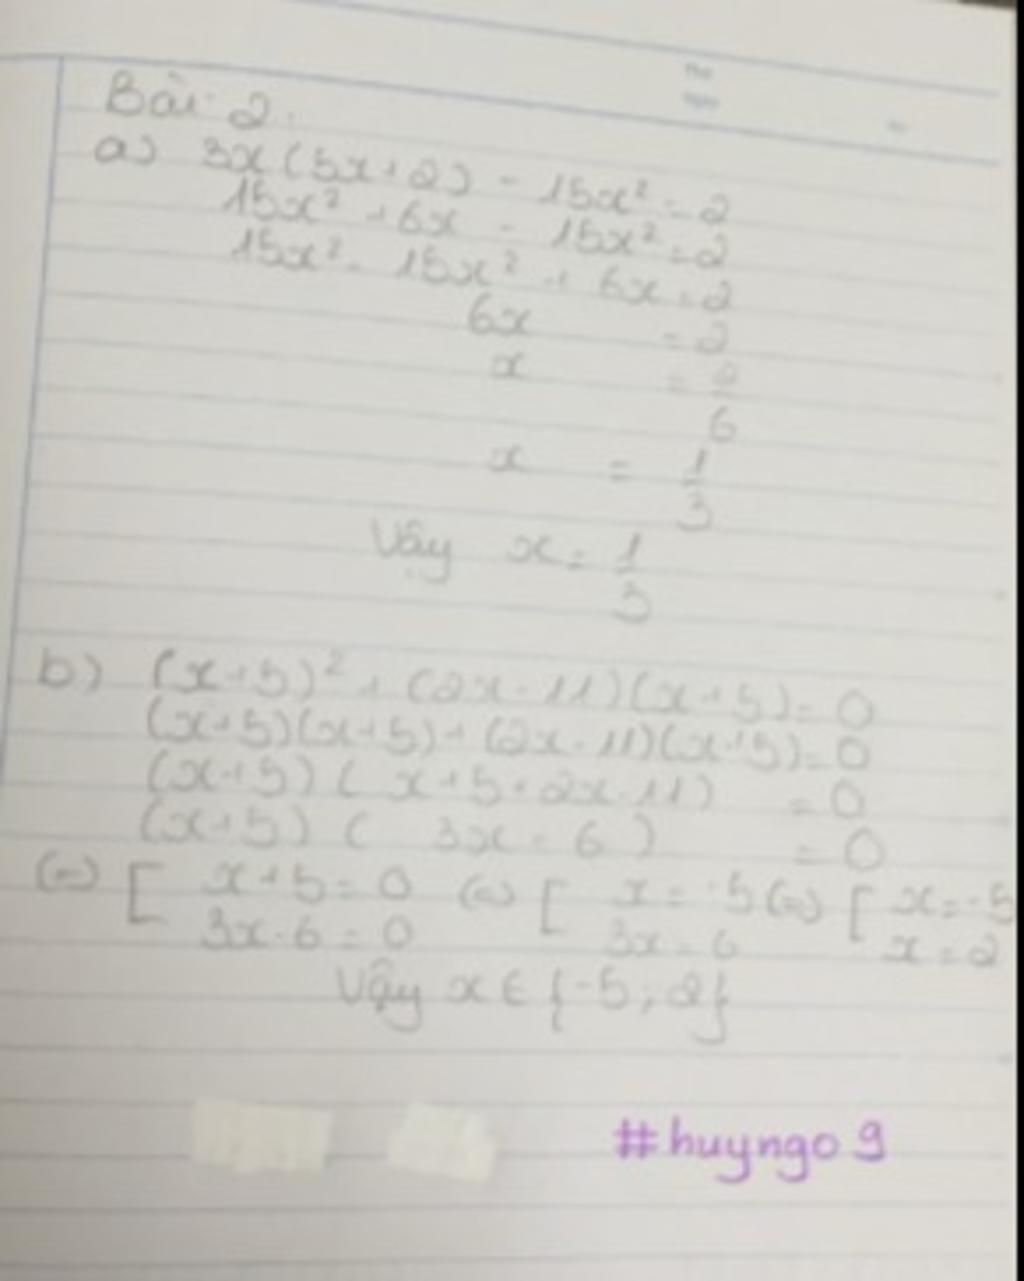 Bài 2.
a) 3x(5x+2) - 15x² = 2
15x² + 6x - 15x² = 2
15x² - 15x² + 6x = 2
6x = 2
x = 2/6
x = 1/3
Vậy x = 1/3
b) (x+5)² + (2x-11)(x+5) = 0
(x+5)(x+5) + (2x-11)(x+5) = 0
(x+5)(x+5+2x-11) = 0
(x+5)(3x-6) = 0
(=) [ x+5=0 (=) [ x=-5 (=) [ x=-5
3x-6=0 3x=6 x=2
Vậy x ∈ {-5; 2}
#huyngo9